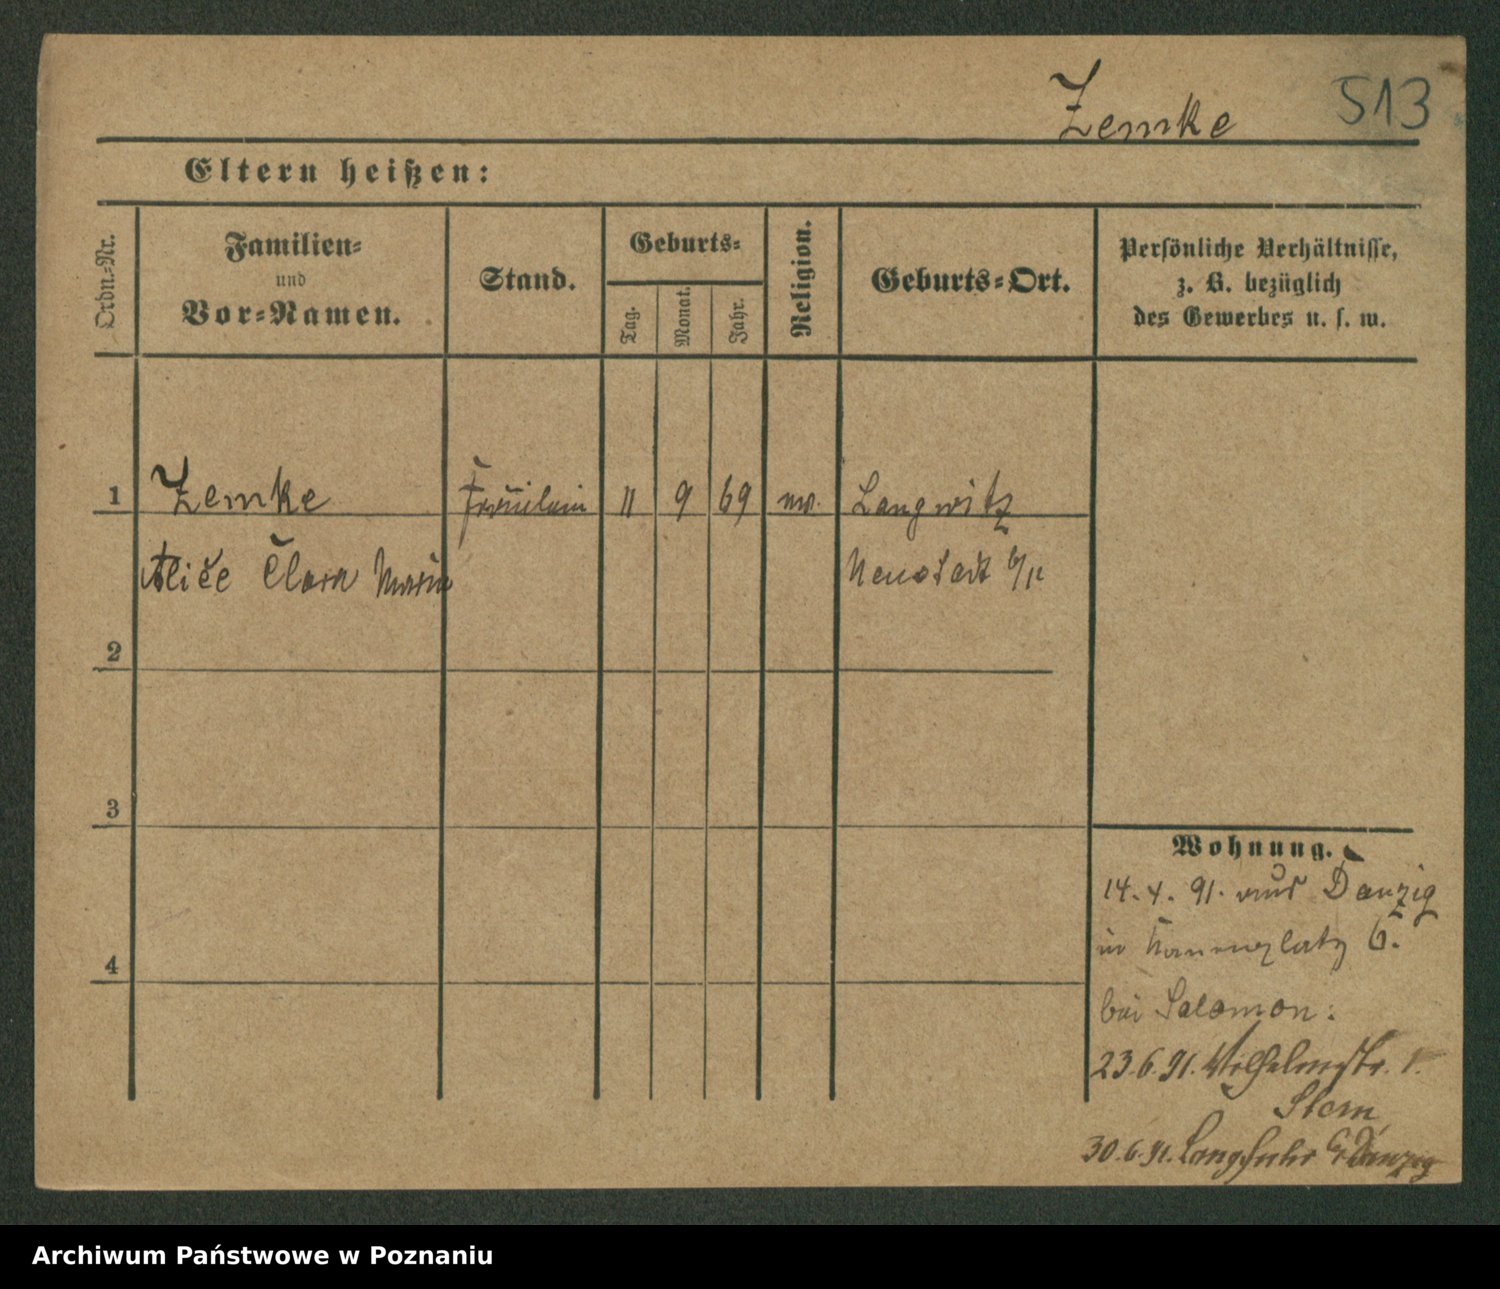 Zemke 513
Eltern heißen:
Ordn.-Nr.
Familien-
und
Vor-Namen.
Stand.
Geburts-
Tag.
Monat.
Jahr.
Religion.
Geburts-Ort.
Persönliche Verhältnisse,
z. B. bezüglich
des Gewerbes u. s. w.
1 Zemke Fräulein 11 9 69 Langwitz
Alice Clara Maria Neustadt
2
3
4
Wohnung.
14.4.91. aus Danzig
in 6.
bei Salomon:
23.6.91. Wilhelmstr. 1.
Stern
30.6.91. Langfuhr Danzig
Archiwum Państwowe w Poznaniu